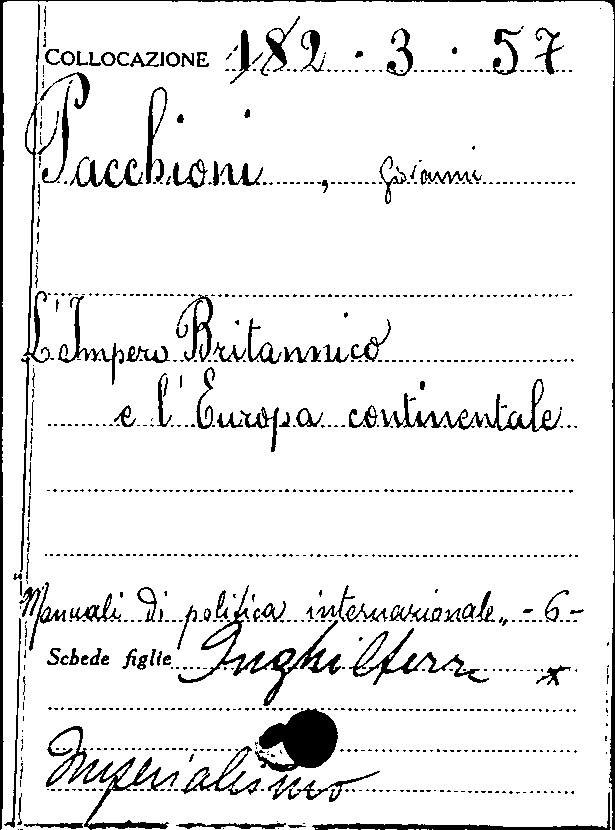 COLLOCAZIONE 182 · 3 · 57
Pacchioni, Giovanni
L'Impero Britannico
e l'Europa continentale
"Manuali di politica internazionale„ - 6 -
Schede figlie Inghilterra *
Imperialismo